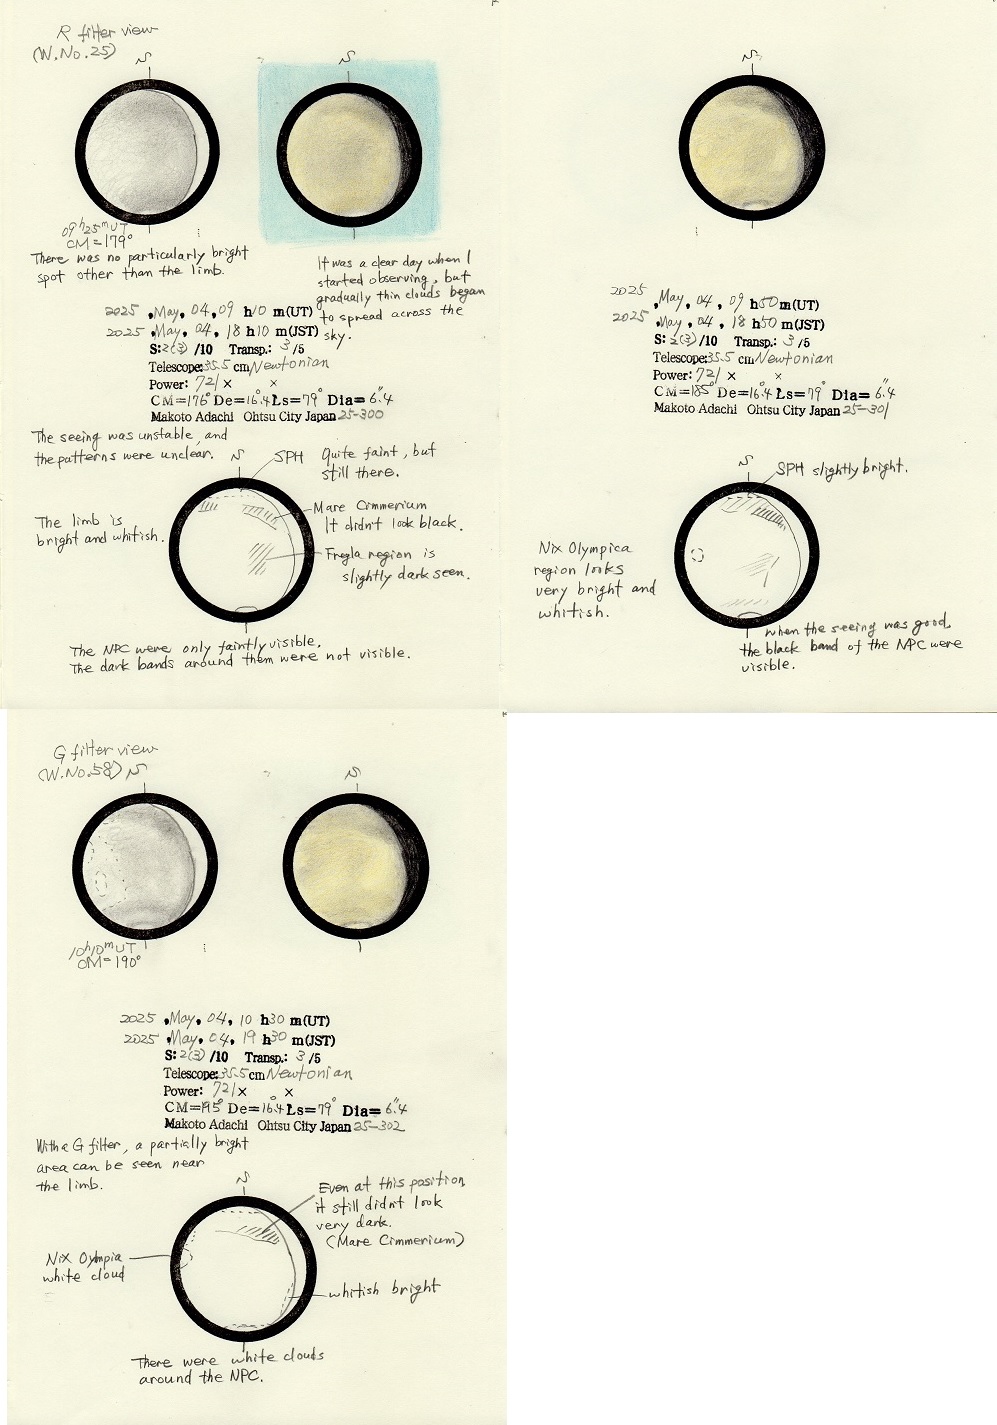 R filter view
(W.No.25)
S
S
09h25mUT
CM=179°
There was no particularly bright
spot other than the limb.
It was a clear day when I
started observing, but
gradually thin clouds began
to spread across the
sky.
2025 ,May, 04, 09 h10 m(UT)
2025 ,May, 04, 18 h10 m(JST)
S:2(3) /10 Transp.: 3 /5
Telescope:35.5 cm Newtonian
Power: 721 × ×
CM=176° De=16.4° Ls=79° Dia=6".4
Makoto Adachi Ohtsu City Japan 25-300
The seeing was unstable, and
the patterns were unclear.
S
SPH Quite faint, but
still there.
Mare Cimmerium
It didn't look black.
The limb is
bright and whitish.
Fregla region is
slightly dark seen.
The NPC were only faintly visible.
The dark bands around them were not visible.
S
2025 ,May, 04, 09 h50 m(UT)
2025 ,May, 04, 18 h50 m(JST)
S: 2(3) /10 Transp.: 3 /5
Telescope:35.5 cm Newtonian
Power: 721 × ×
CM=185° De=16.4° Ls=79° Dia=6".4
Makoto Adachi Ohtsu City Japan 25-301
S
SPH slightly bright.
Nix Olympica
region looks
very bright and
whitish.
When the seeing was good,
the black band of the NPC were
visible.
G filter view
(W.No.58)
S
S
10h10mUT
CM=190°
2025 ,May, 04, 10 h30 m(UT)
2025 ,May, 04, 19 h30 m(JST)
S:2(3) /10 Transp.: 3 /5
Telescope:35.5 cm Newtonian
Power: 721 × ×
CM=195° De=16.4° Ls=79° Dia=6".4
Makoto Adachi Ohtsu City Japan 25-302
With a G filter, a partially bright
area can be seen near
the limb.
S
Even at this position
it still didn't look
very dark.
(Mare Cimmerium)
Nix Oylmpia
white cloud
whitish bright
There were white clouds
around the NPC.